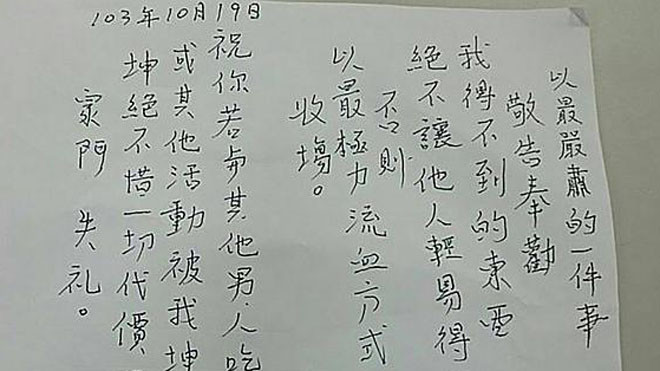 以最嚴肅的一件事
敬告奉勸
我得不到的東西
絕不讓他人輕易得
否則
以最極力流血方式
收場。
祝你若与其他男人吃
或其他活動被我坤
坤絕不惜一切代價
家門 失礼。
103年10月19日